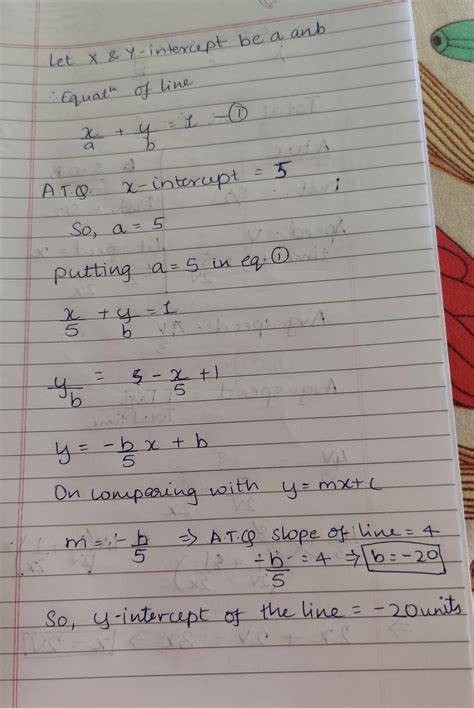 Let X & Y-intercept be a anb
∴ Equatⁿ of line
x/a + y/b = 1 —①
A.T.Q. x-intercept = 5
So, a = 5
putting a = 5 in eq. ①
x/5 + y/b = 1
y/b = 5 - x/5 + 1
y = -b/5 x + b
On comparing with y = mx + c
m = -b/5 ⇒ A.T.Q slope of line = 4
-b/5 = 4 ⇒ b = -20
So, y-intercept of the line = -20 units